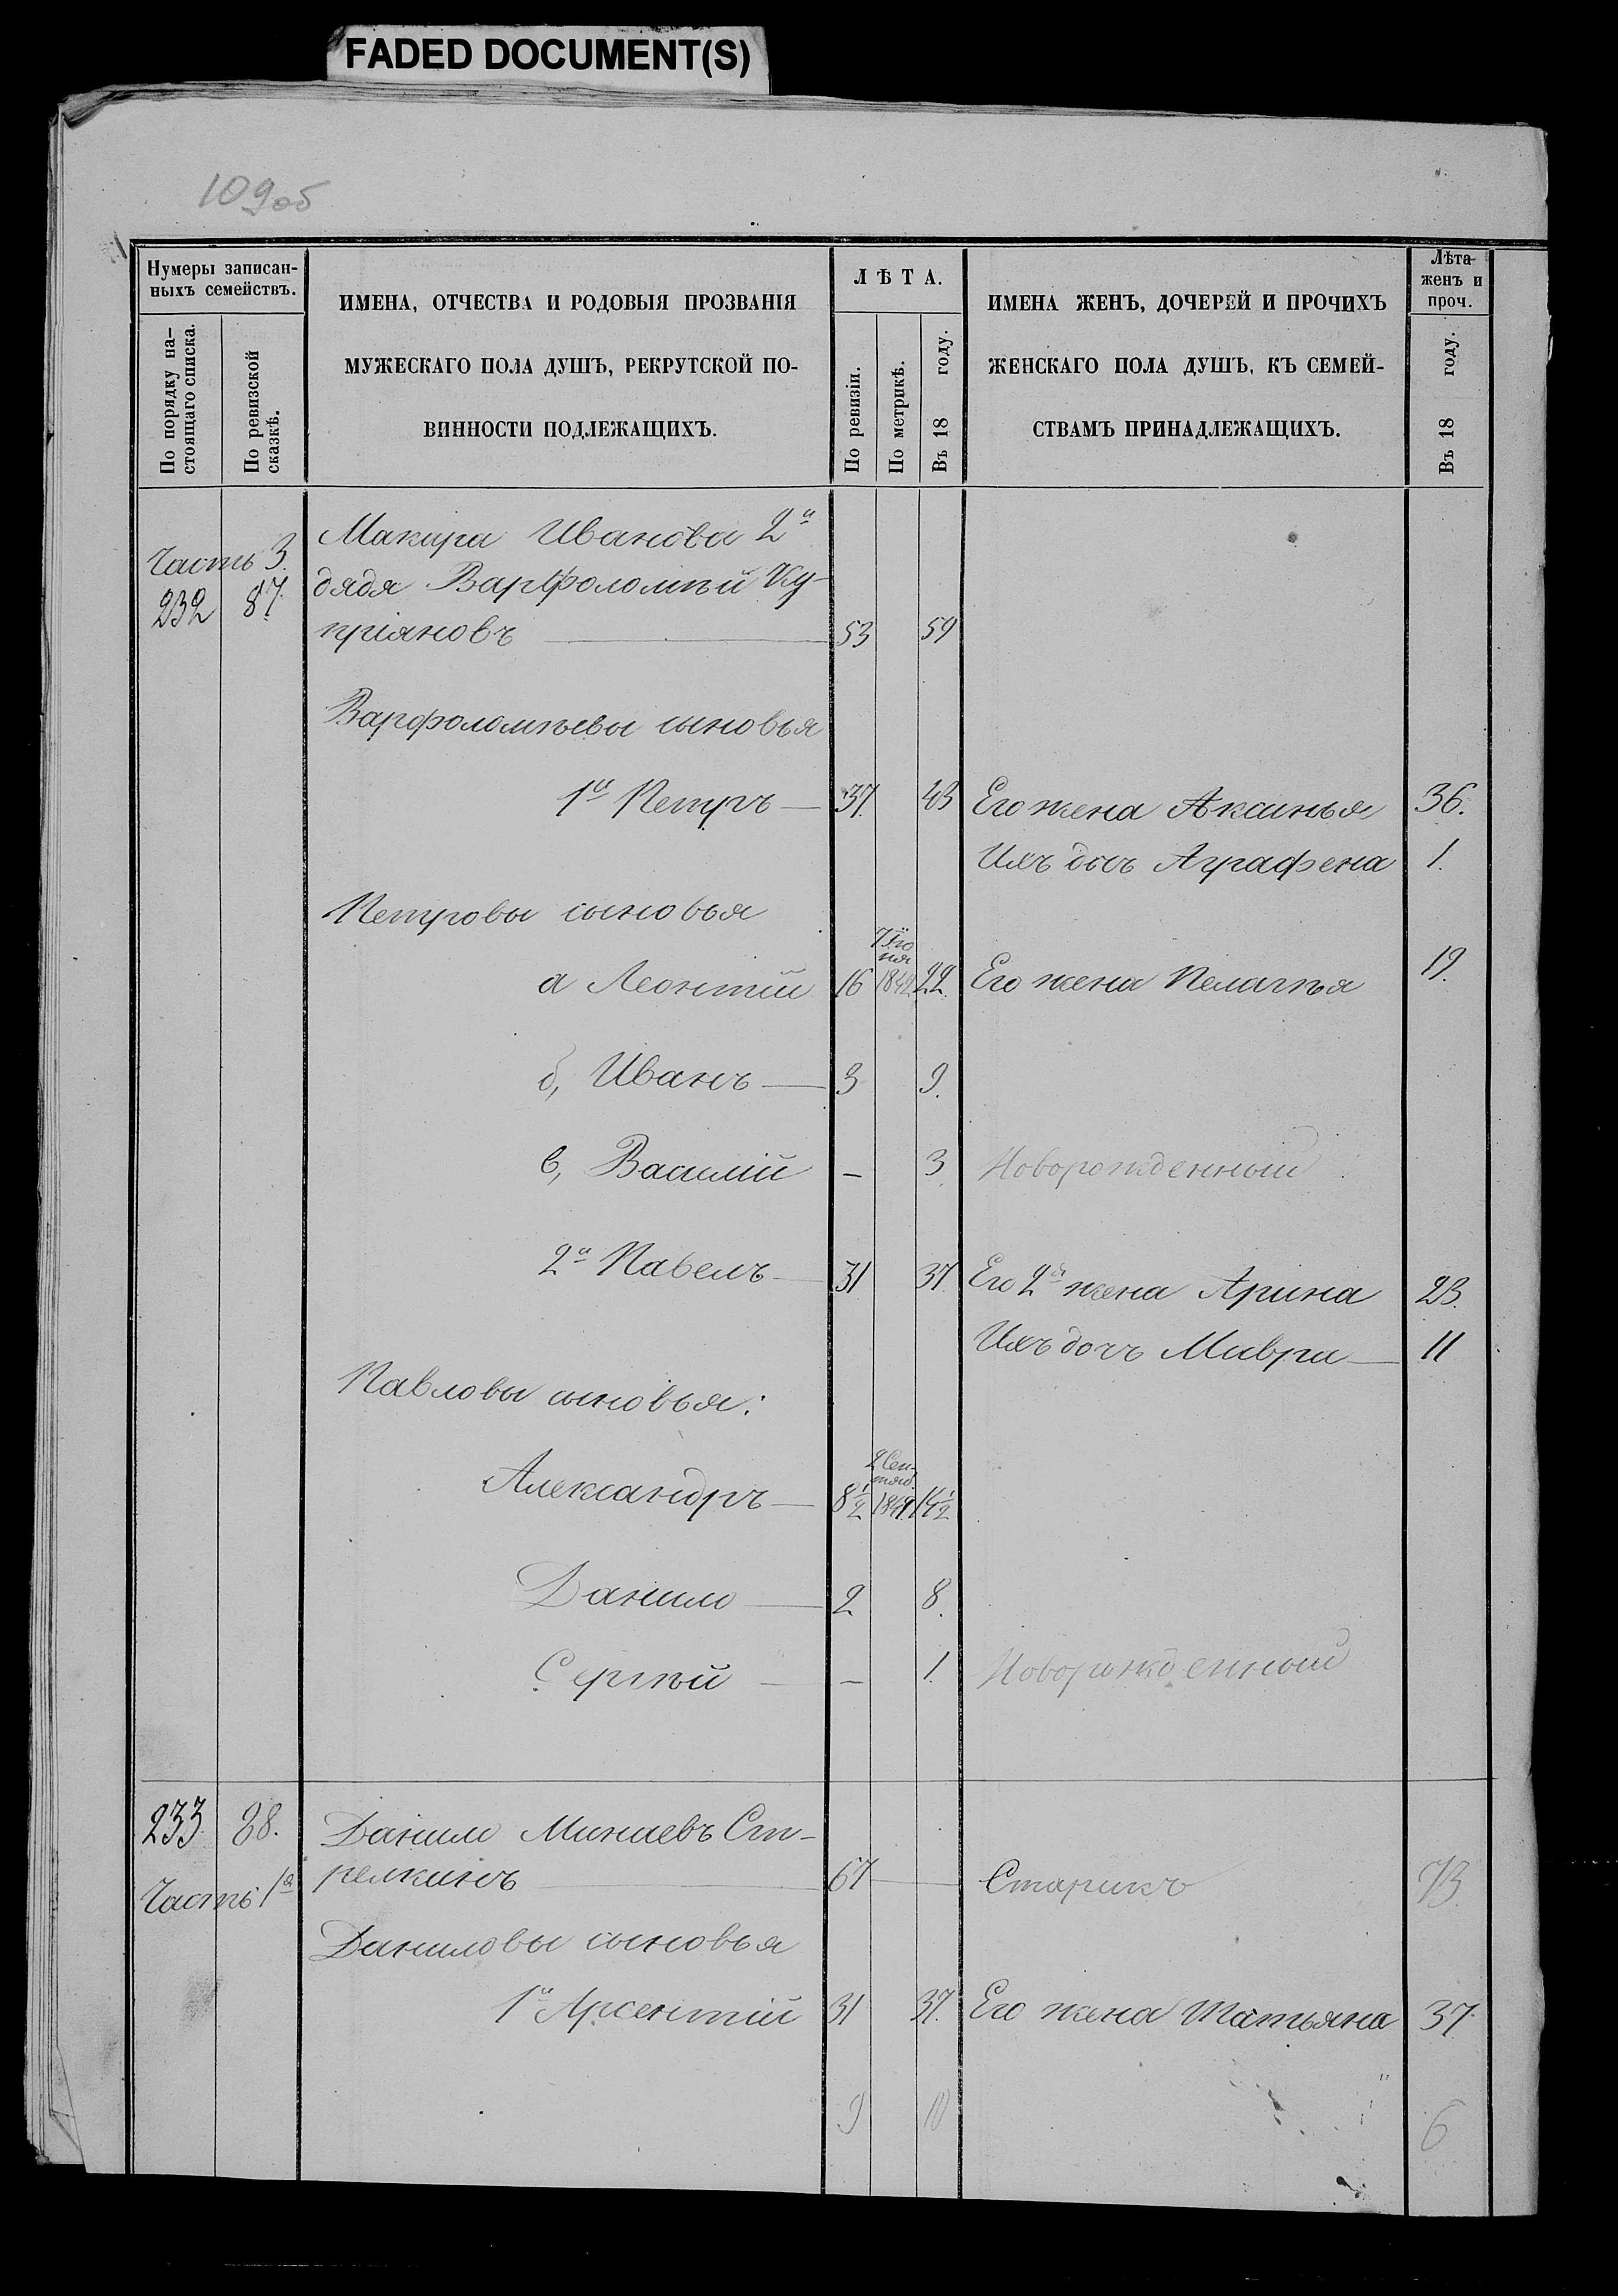 FADED DOCUMENT(S)
109об
Нумеры записан-
ныхъ семействъ.
По порядку на-
стоящаго списка.
По ревизской
сказкѣ.
ИМЕНА, ОТЧЕСТВА И РОДОВЫЯ ПРОЗВАНІЯ
МУЖЕСКАГО ПОЛА ДУШЪ, РЕКРУТСКОЙ ПО-
ВИННОСТИ ПОДЛЕЖАЩИХЪ.
ЛѢТА.
По ревизіи.
По метрикѣ.
Въ 18 году.
ИМЕНА ЖЕНЪ, ДОЧЕРЕЙ И ПРОЧИХЪ
ЖЕНСКАГО ПОЛА ДУШЪ, КЪ СЕМЕЙ-
СТВАМЪ ПРИНАДЛЕЖАЩИХЪ.
Лѣта
женъ и
проч.
Въ 18 году.
Макара Иванова 2й
Часть 3.
дядя Варфоломѣй Ку-
232 87.
пріяновъ 53 59
Варфоломѣевы сыновья
1й Петръ 37 43 Его жена Аксинья 36.
Ихъ дочь Аграфена 1.
Петровы сыновья
7 Iю
ня
а Леонтій 16 1842 22. Его жена Пелагѣя 19.
б, Иванъ 3 9.
в, Василій — 3 Новорожденный
2й Павелъ 31 37 Его 2я жена Арина 23.
Ихъ дочь Мавра 11
Павловы сыновья:
2 Сен-
тяб.
Александръ 8½ 1849 14½
Данило 2 8.
Сергѣй — 1. Новорожденный
233 88. Данило Минаевъ Ст-
релкинъ 67 Старикъ 73.
Часть 1я
Даниловы сыновья
1й Арсентій 31 37. Его жена Татьяна 37
9 10 6